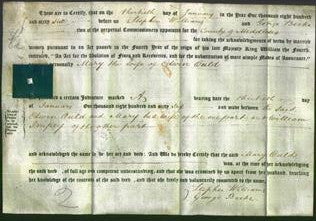 These are to certify, that on the Thirtieth day of January in the Year One thousand eight hundred
and sixty before us Stephen Williams and George Beeke
two of the perpetual Commissioners appointed for the County of Middlesex
for taking the acknowledgments of deeds by married
women pursuant to an Act passed in the Fourth Year of the reign of his late Majesty King William the Fourth,
intituled, "An Act for the Abolition of Fines and Recoveries, and for the substitution of more simple Modes of Assurance,"
personally Mary the wife of Edwin Auld
a certain Indenture marked A bearing date the
of January One thousand eight hundred and sixty and made between the said
Edwin Auld and Mary his wife of the one part and William
of the other part
and acknowledged the same to be her act and deed: And We do hereby Certify that the said Mary Auld
was, at the time of her acknowledging
the said deed, of full age and competent understanding, and that she was examined by us apart from her husband, touching
her knowledge of the contents of the said deed, and that she freely and voluntarily consented to the same.
Stephen Williams
George Beeke